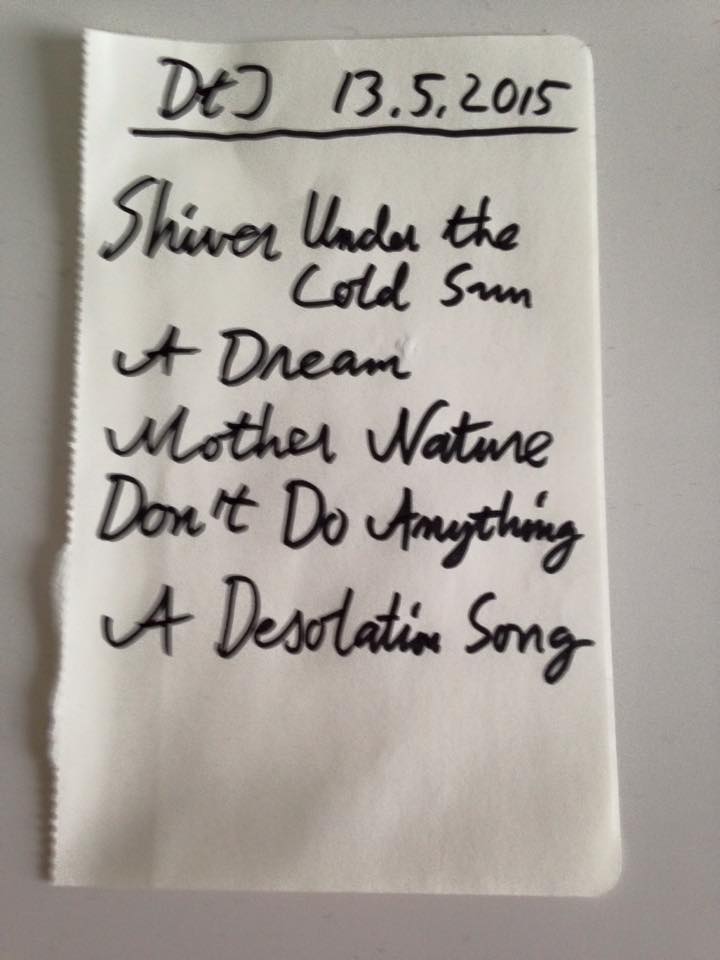 DtJ 13.5.2015
Shiver Under the
Cold Sun
A Dream
Mother Nature
Don't Do Anything
A Desolation Song